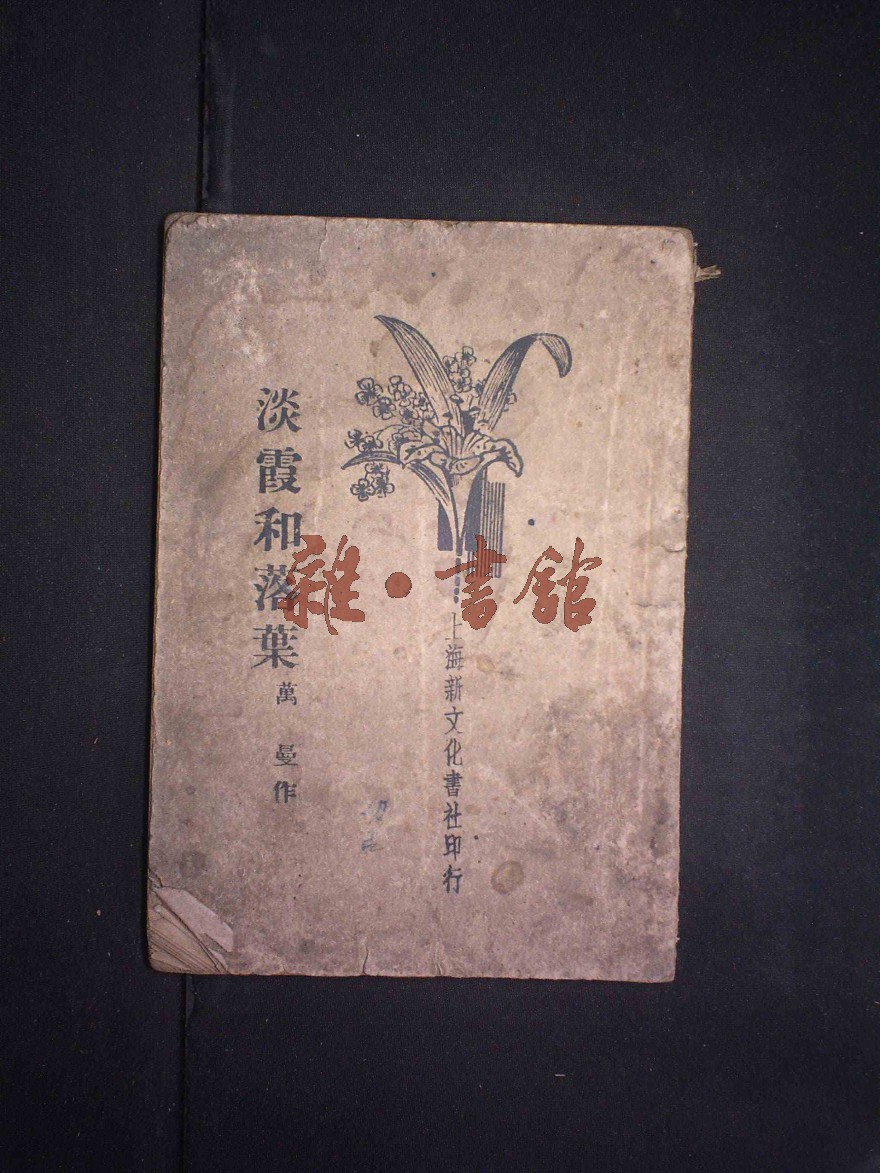 淡霞和落葉
萬曼作
上海新文化書社印行
雜·書館